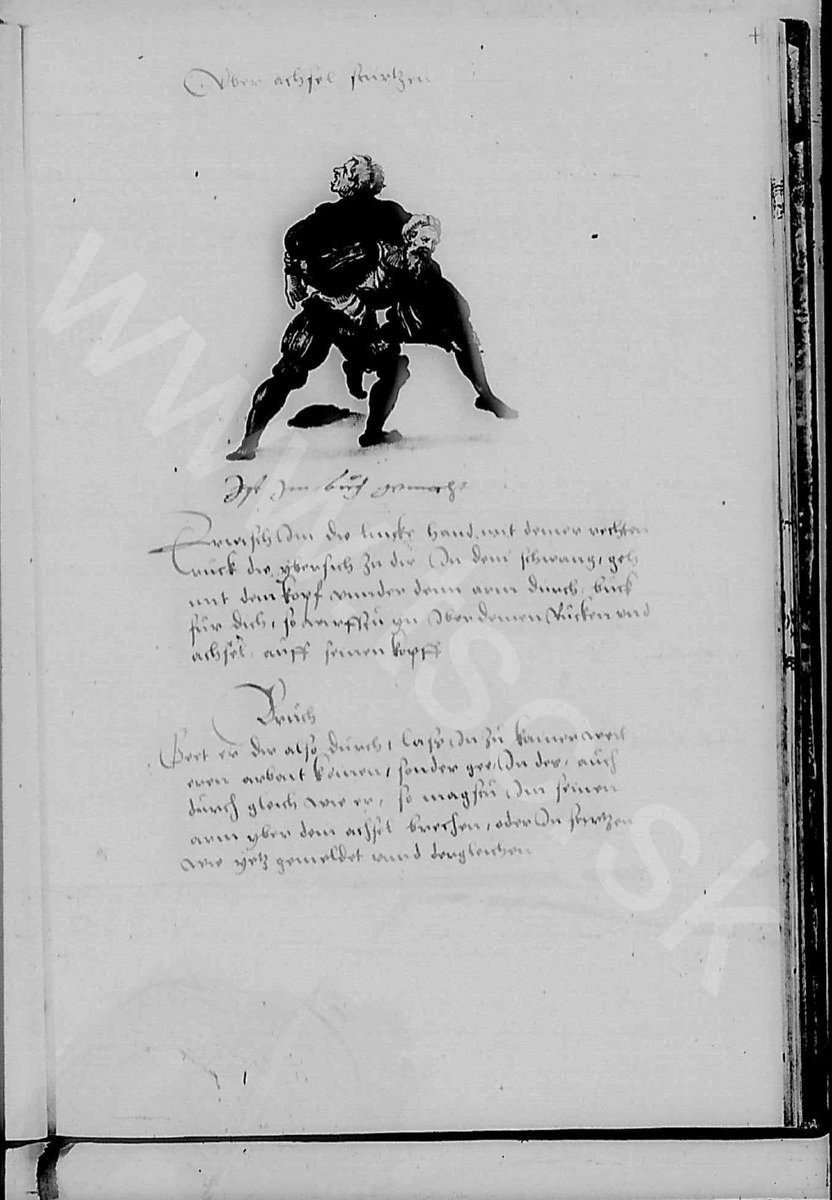 Uber achsel sturtzen
Ist Im buch gemacht
Erwisch Im die lincke hand mit deiner rechten
ruck die ybersich zu dir In dem schwang, geh
mit dem kopf vnnder denn arm durch, buck
für dich, so wirfstu yn Iber deinen Rücken vnd
achsel, auff seinen kopff
Bruch
Geet er dir also durch, lass In zu kainer weit
eren arbait komen, sonder gee In der, auch
durch gleich wie er, so magstu Im seinen
arm yber dem achsel brechen, oder In sturtzen
wie yetz gemeldet vnnd dergleichen
www.hsc.sk